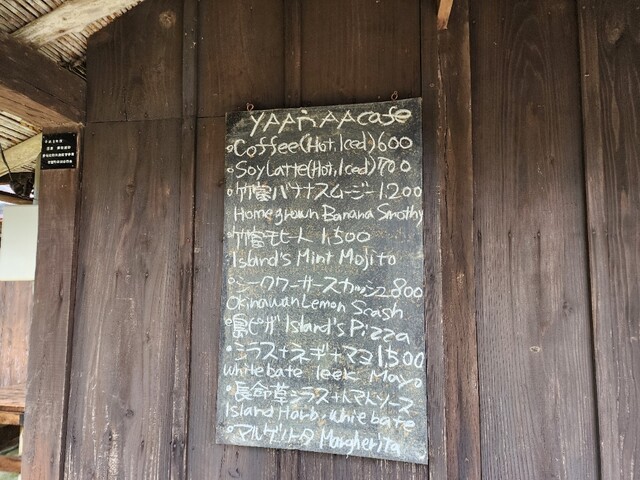 YAAnAAcafe
•Coffee(Hot,Iced)600
•SoyLatte(Hot,Iced)700
•竹富バナナスムージー1.200
Homegrown Banana Smothy
•竹富モヒート 1.500
Island's Mint Mojito
•シークワーサースカッシュ800
Okinawan Lemon Scash
•島ピザ Island's Pizza
•シラス+ネギ+マヨ1,500
white bate leek Mayo
•長命草シラス+トマトソース
Island Harb, white bate
•マルゲリータ Margherita